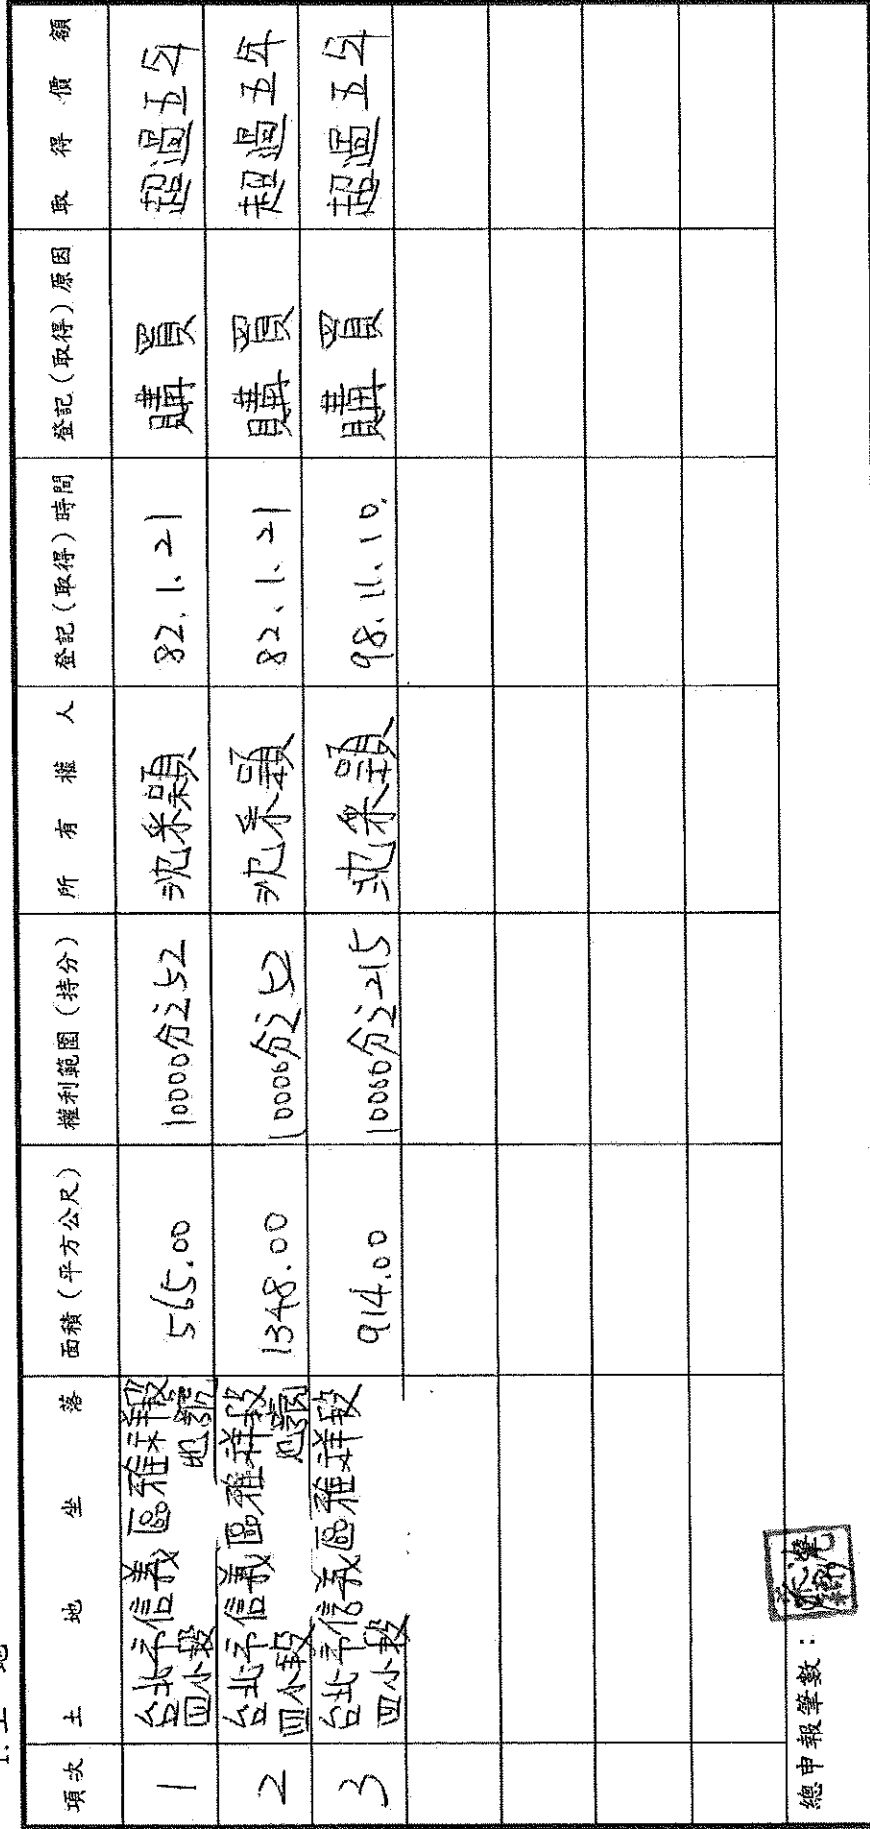 項次 土地坐落 面積(平方公尺) 權利範圍(持分) 所有權人 登記(取得)時間 登記(取得)原因 取得價額
1 台北市信義區雅祥段四小段 地號 565.00 10000分之52 沈采穎 82.1.21 購買 超過五年
2 台北市信義區雅祥段四小段 地號 1348.00 10000分之52 沈采穎 82.1.21 購買 超過五年
3 台北市信義區雅祥段四小段 914.00 10000分之215 沈采穎 98.11.10. 購買 超過五年
總申報筆數: